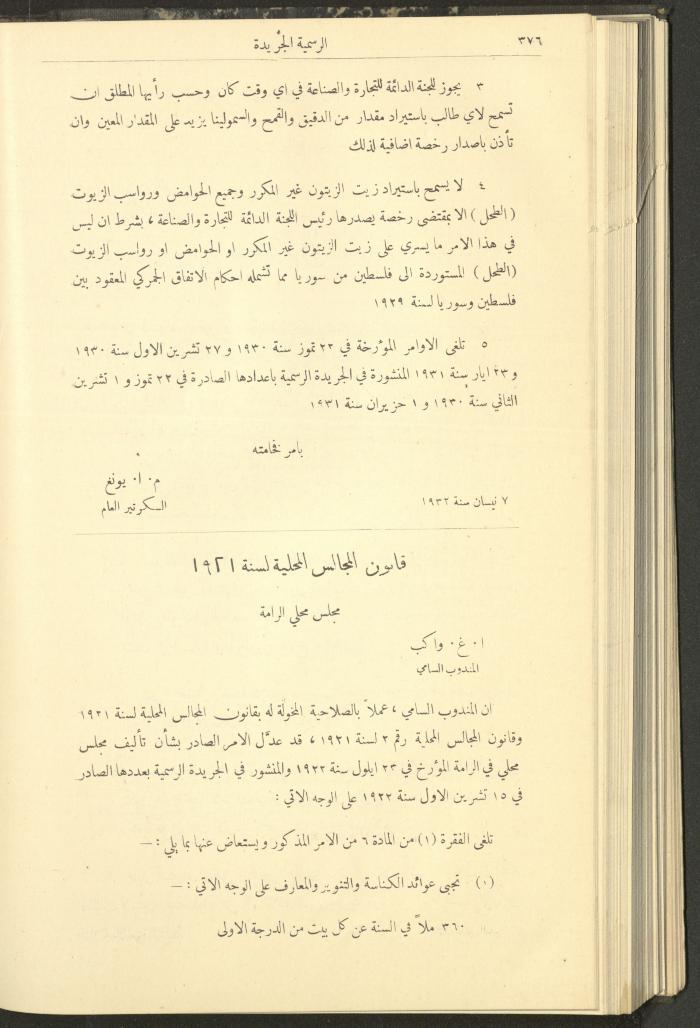 ٣٧٦
الرسمية الجريدة
٣ يجوز للجنة الدائمة للتجارة والصناعة في اي وقت كان وحسب رأيها المطلق ان
تسمح لاي طالب باستيراد مقدار من الدقيق والقمح والسمولينا يزيد على المقدار المعين وان
تأذن باصدار رخصة اضافية لذلك
٤ لا يسمح باستيراد زيت الزيتون غير المكرر وجميع الحوامض ورواسب الزيوت
(الطحل) الا بمقتضى رخصة يصدرها رئيس اللجنة الدائمة للتجارة والصناعة ، بشرط ان ليس
في هذا الامر ما يسري على زيت الزيتون غير المكرر او الحوامض او رواسب الزيوت
(الطحل) المستوردة الى فلسطين من سوريا مما تشمله احكام الاتفاق الجمركي المعقود بين
فلسطين وسوريا لسنة ١٩٢٩
٥ تلغى الاوامر المؤرخة في ٢٢ تموز سنة ١٩٣٠ و ٢٧ تشرين الاول سنة ١٩٣٠
و ٢٣ ايار سنة ١٩٣١ المنشورة في الجريدة الرسمية باعدادها الصادرة في ٢٢ تموز و ١ تشرين
الثاني سنة ١٩٣٠ و ١ حزيران سنة ١٩٣١
بامر فخامته
م٠ ا٠ يونغ
٧ نيسان سنة ١٩٣٢
السكرتير العام
قانون المجالس المحلية لسنة ١٩٢١
مجلس محلي الرامة
ا٠ غ٠ واكب
المندوب السامي
ان المندوب السامي ، عملاً بالصلاحية المخولة له بقانون المجالس المحلية لسنة ١٩٢١
وقانون المجالس المحلية رقم ٢ لسنة ١٩٢١ ، قد عدّل الامر الصادر بشأن تأليف مجلس
محلي في الرامة المؤرخ في ٢٣ ايلول سنة ١٩٢٢ والمنشور في الجريدة الرسمية بعددها الصادر
في ١٥ تشرين الاول سنة ١٩٢٢ على الوجه الاتي :
تلغى الفقرة (١) من المادة ٦ من الامر المذكور ويستعاض عنها بما يلي : —
(١) تجبى عوائد الكناسة والتنوير والمعارف على الوجه الاتي : —
٣٦٠ ملاً في السنة عن كل بيت من الدرجة الاولى